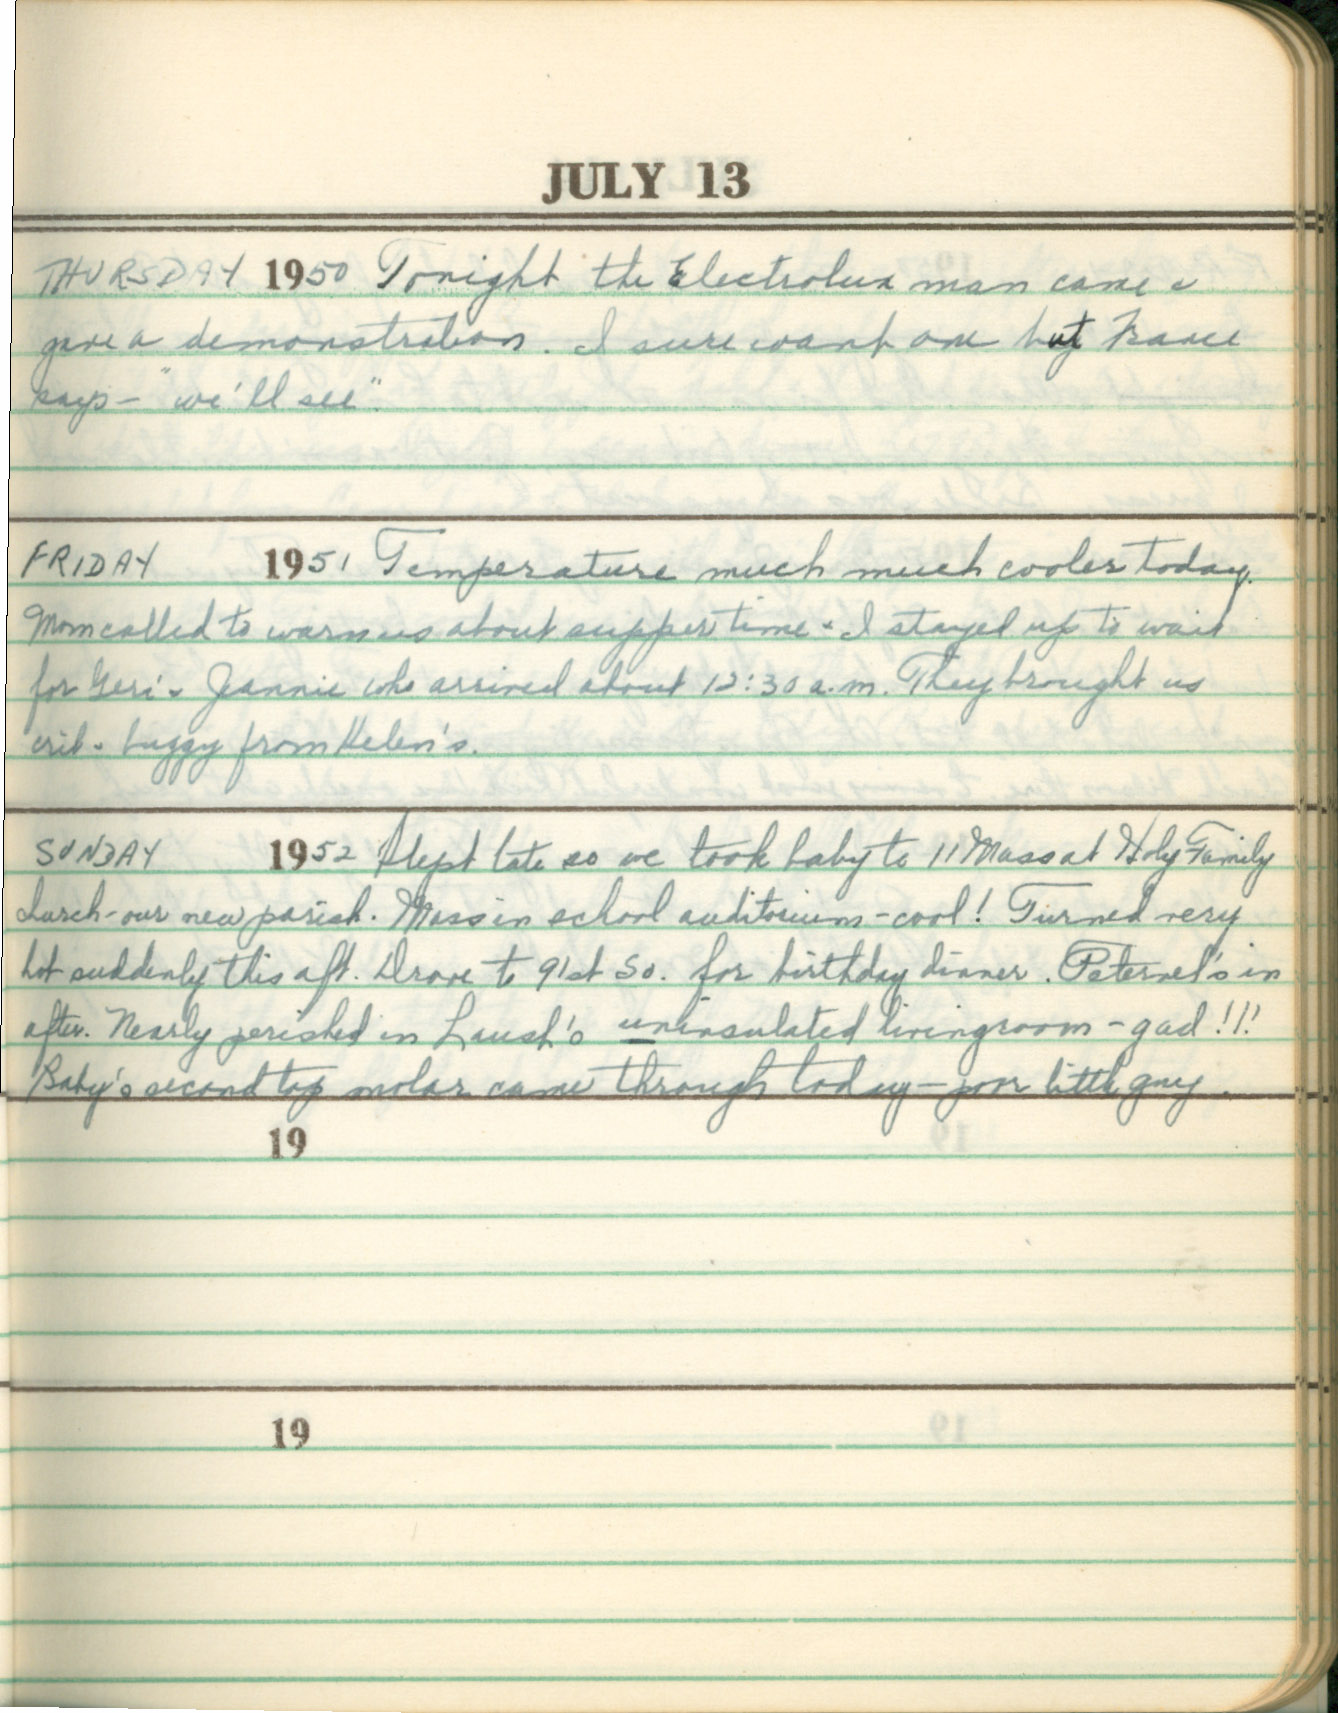 JULY 13
THURSDAY 1950 Tonight the Electrolux man came &
gave a demonstration. I sure want one but
says - "we'll see".
FRIDAY 1951 Temperature much much cooler today.
Mom called to warn us about supper time & I stayed up to wait
for Geri & Jeannie who arrived about 12:30 a.m. They brought us
crib & buggy from Helen's.
SUNDAY 1952 Slept late so we took baby to 11 Mass at Holy Family
church - our new parish. Mass in school auditorium - cool! Turned very
hot suddenly this aft. Drove to 91st So. for birthday dinner. Paternel's in
after. Nearly perished in uninsulated livingroom - gad!!!
Baby's second top molar came through today - poor little guy.
19
19